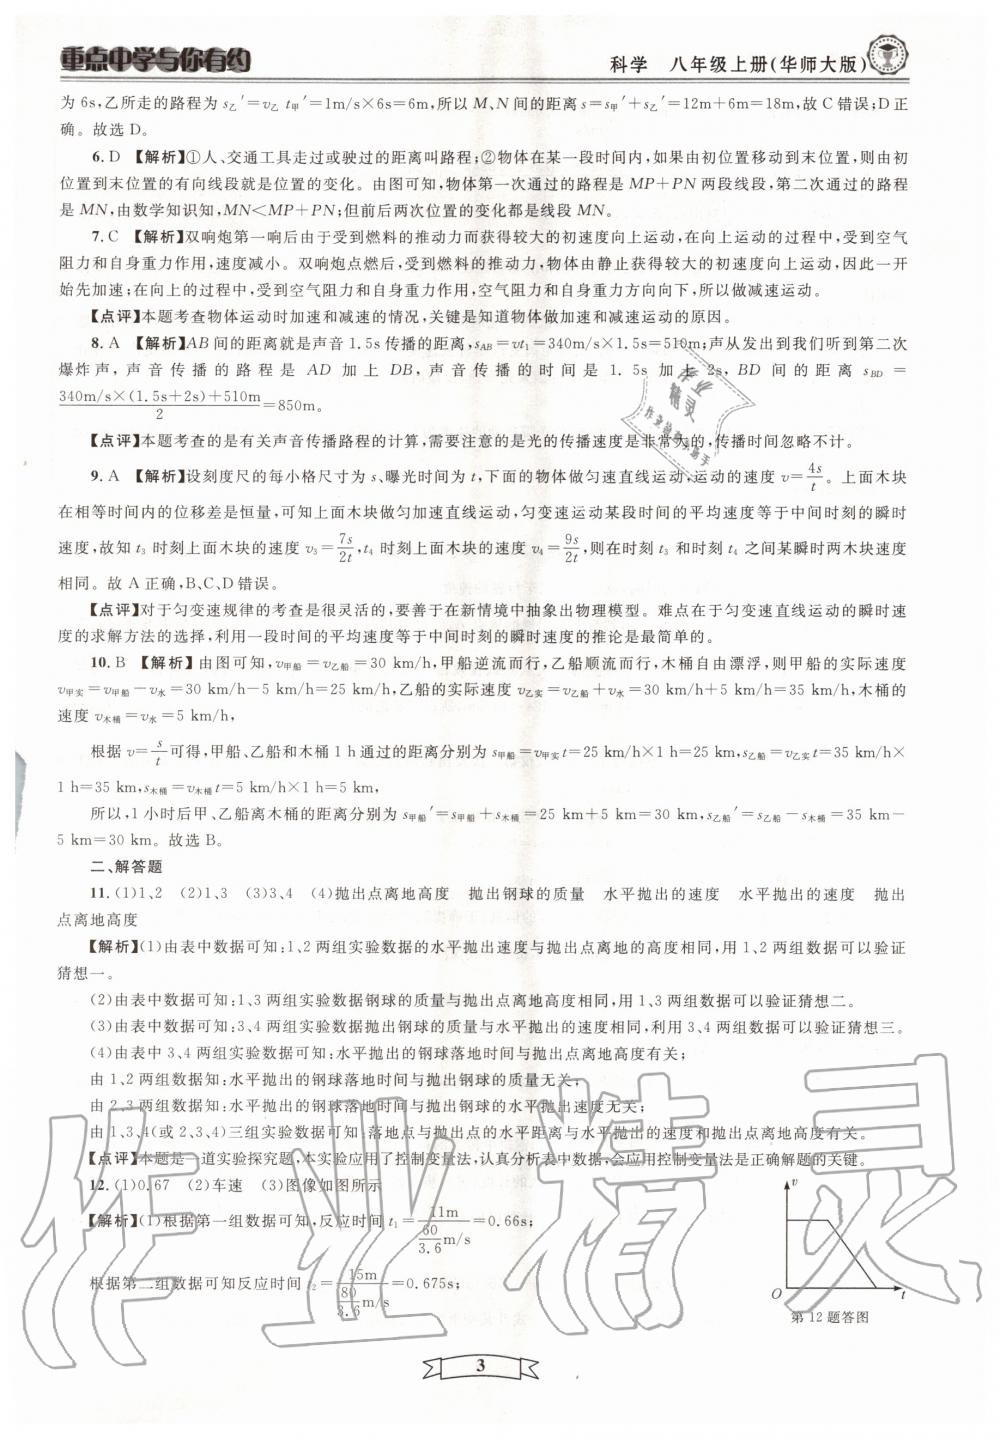 重点中学与你有约
科学 八年级上册(华师大版)
为 6s,乙所走的路程为 s乙′=v乙 t甲′=1m/s×6s=6m,所以 M、N 间的距离 s=s甲′+s乙′=12m+6m=18m,故 C 错误;D 正
确。故选 D。
6. D 【解析】①人、交通工具走过或驶过的距离叫路程;②物体在某一段时间内,如果由初位置移动到末位置,则由初
位置到末位置的有向线段就是位置的变化。由图可知,物体第一次通过的路程是 MP+PN 两段线段,第二次通过的路程
是 MN,由数学知识知,MN<MP+PN;但前后两次位置的变化都是线段 MN。
7. C 【解析】双响炮第一响后由于受到燃料的推动力而获得较大的初速度向上运动,在向上运动的过程中,受到空气
阻力和自身重力作用,速度减小。双响炮点燃后,受到燃料的推动力,物体由静止获得较大的初速度向上运动,因此一开
始先加速;在向上的过程中,受到空气阻力和自身重力作用,空气阻力和自身重力方向向下,所以做减速运动。
【点评】本题考查物体运动时加速和减速的情况,关键是知道物体做加速和减速运动的原因。
8. A 【解析】AB 间的距离就是声音 1.5s 传播的距离,sAB=vt1=340m/s×1.5s=510m;声从发出到我们听到第二次
爆炸声,声音传播的路程是 AD 加上 DB,声音传播的时间是 1.5s 加上 2s,BD 间的距离 sBD=
340m/s×(1.5s+2s)+510m/2=850m。
【点评】本题考查的是有关声音传播路程的计算,需要注意的是光的传播速度是非常大的,传播时间忽略不计。
9. A 【解析】设刻度尺的每小格尺寸为 s、曝光时间为 t,下面的物体做匀速直线运动,运动的速度 v=4s/t。上面木块
在相等时间内的位移差是恒量,可知上面木块做匀加速直线运动,匀变速运动某段时间的平均速度等于中间时刻的瞬时
速度,故知 t3 时刻上面木块的速度 v3=7s/2t,t4 时刻上面木块的速度 v4=9s/2t,则在时刻 t3 和时刻 t4 之间某瞬时两木块速度
相同。故 A 正确,B、C、D 错误。
【点评】对于匀变速规律的考查是很灵活的,要善于在新情境中抽象出物理模型。难点在于匀变速直线运动的瞬时速
度的求解方法的选择,利用一段时间的平均速度等于中间时刻的瞬时速度的推论是最简单的。
10. B 【解析】由图可知,v甲船=v乙船=30 km/h,甲船逆流而行,乙船顺流而行,木桶自由漂浮,则甲船的实际速度
v甲实=v甲船-v水=30 km/h-5 km/h=25 km/h,乙船的实际速度 v乙实=v乙船+v水=30 km/h+5 km/h=35 km/h,木桶的
速度 v木桶=v水=5 km/h,
根据 v=s/t可得,甲船、乙船和木桶 1 h 通过的距离分别为 s甲船=v甲实t=25 km/h×1 h=25 km,s乙船=v乙实t=35 km/h×
1 h=35 km,s木桶=v木桶t=5 km/h×1 h=5 km,
所以,1 小时后甲、乙船离木桶的距离分别为 s甲船′=s甲船+s木桶=25 km+5 km=30 km,s乙船′=s乙船-s木桶=35 km-
5 km=30 km。故选 B。
二、解答题
11. (1)1、2 (2)1、3 (3)3、4 (4)抛出点离地高度 抛出钢球的质量 水平抛出的速度 水平抛出的速度 抛出
点离地高度
【解析】(1)由表中数据可知:1、2 两组实验数据的水平抛出速度与抛出点离地的高度相同,用 1、2 两组数据可以验证
猜想一。
(2)由表中数据可知:1、3 两组实验数据钢球的质量与抛出点离地高度相同,用 1、3 两组数据可以验证猜想二。
(3)由表中数据可知:3、4 两组实验数据抛出钢球的质量与水平抛出的速度相同,利用 3、4 两组数据可以验证猜想三。
(4)由表中 3、4 两组实验数据可知:水平抛出的钢球落地时间与抛出点离地高度有关;
由 1、2 两组数据知:水平抛出的钢球落地时间与抛出钢球的质量无关;
由 2、3 两组数据知:水平抛出的钢球落地时间与抛出钢球的水平抛出速度无关;
由 1、3、4(或 2、3、4)三组实验数据可知:落地点与抛出点的水平距离与水平抛出的速度和抛出点离地高度有关。
【点评】本题是一道实验探究题,本实验应用了控制变量法,认真分析表中数据,会应用控制变量法是正确解题的关键。
12. (1)0.67 (2)车速 (3)图像如图所示
【解析】(1)根据第一组数据可知,反应时间 t1=11m/(60/3.6 m/s)=0.66s;
根据第二组数据可知反应时间 t2=15m/(80/3.6 m/s)=0.675s;
v
O
t
第 12 题答图
3
作业精灵
作业精灵